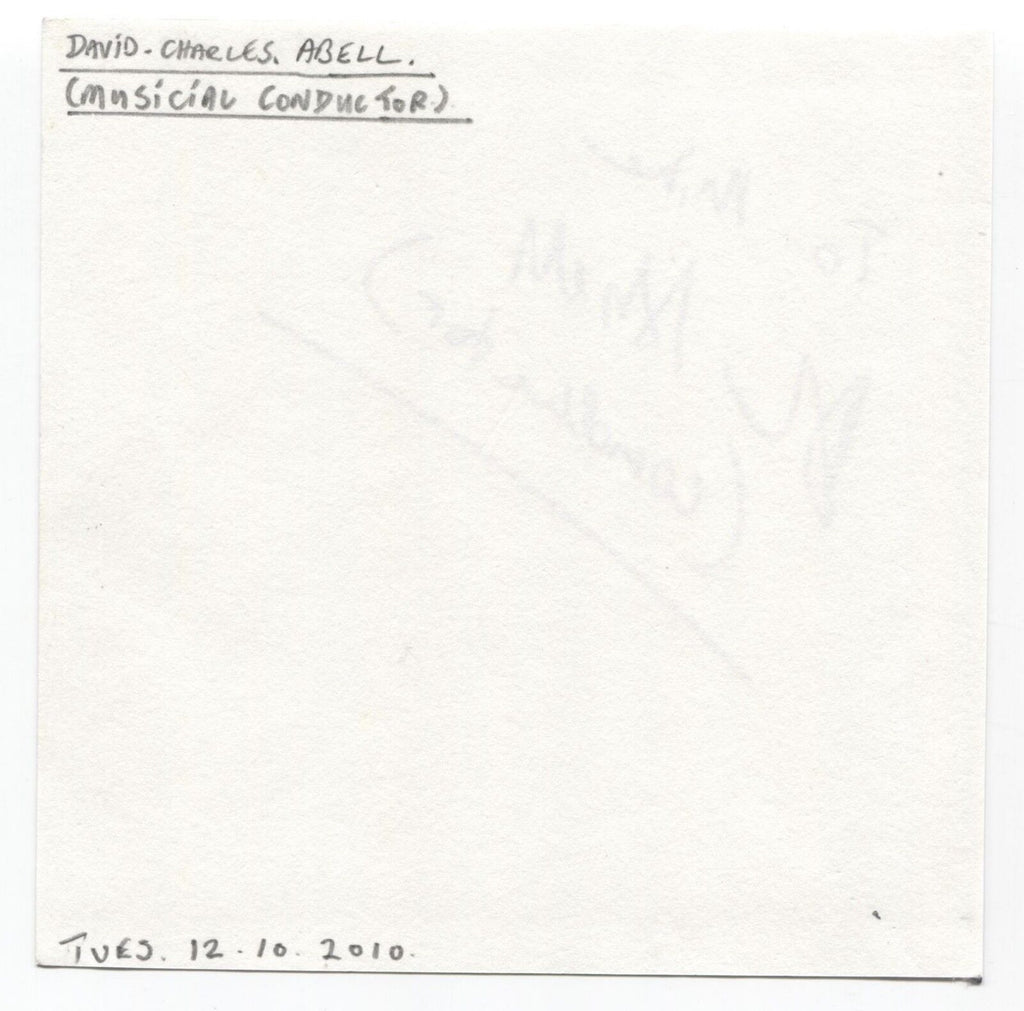 DAVID-CHARLES. ABELL.
(MUSICIAL CONDUCTOR.)
To
TUES. 12-10. 2010.